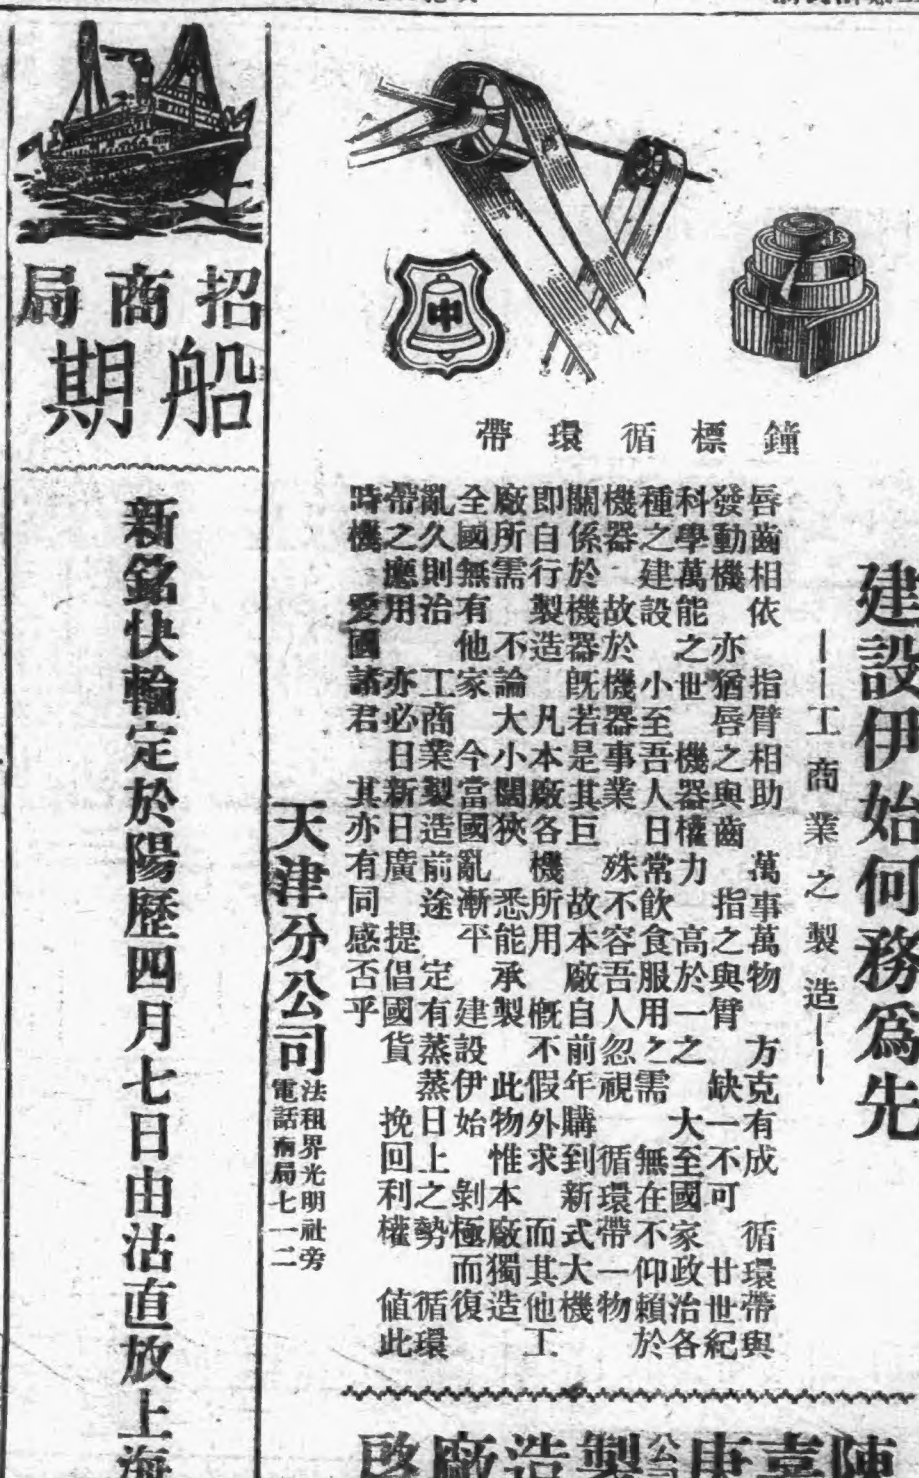 建設伊始何務爲先
——工商業之製造——
鐘標循環帶
中
唇齒相依 指臂相助 萬事萬物 方克有成 循環帶與
發動機 亦猶唇之與齒 指之與臂 缺一不可 廿世紀
科學萬能之世 機器權力 高於一之 大至國家政治各
種之建設 小至吾人日常飲食服用之需 無在不仰賴於
機器 故於機器事業 殊不容吾人忽視 循環帶一物
關係於機器旣若是其巨 故本廠自前年購到新式大機
即自行製造 凡本廠各機所用 慨不假外求 而其他工
廠所需 不論大小闊狹 悉能承製 此物惟本廠獨造
全國無有他家 今當國亂漸平 建設伊始 剝極而復
亂久則治 工商業製造前途 定有蒸蒸日上之勢 循環
帶之應用 亦必日新日廣 提倡國貨 挽回利權 値此
時機 愛國諸君 其亦有同感否乎
天津分公司
法租界光明社旁
電話南局七一二
陳嘉庚公司製造廠啓
招商局
船期
新銘快輪定於陽歷四月七日由沽直放上海